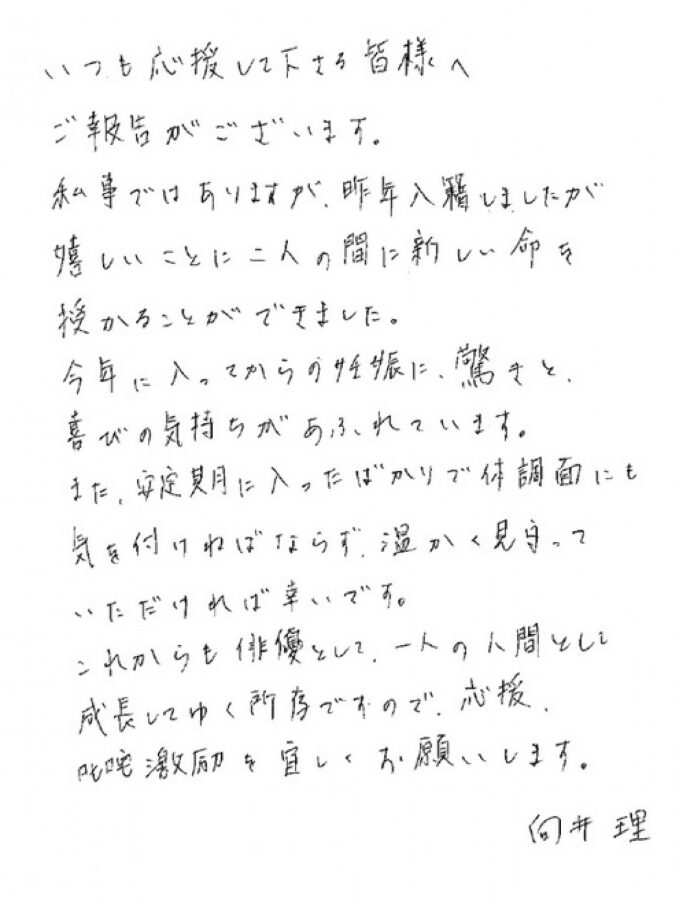 いつも応援して下さる皆様へ
ご報告がございます。
私事ではありますが、昨年入籍しましたが
嬉しいことに二人の間に新しい命を
授かることができました。
今年に入ってからの妊娠に、驚きと、
喜びの気持ちがあふれています。
また、安定期に入ったばかりで体調面にも
気を付ければならず、温かく見守って
いただければ幸いです。
これからも俳優として、一人の人間として
成長してゆく所存ですので、応援、
叱咤激励を宜しくお願いします。
向井理